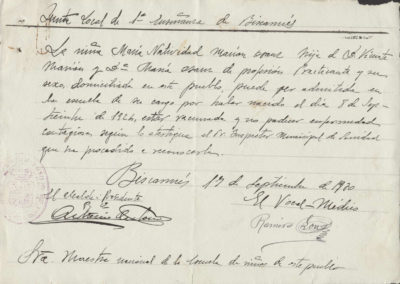 Junta Local de 1ª Enseñanza de Biscarrués
La niña María Natividad Marión hija de Dn. Vicente
Marión y Dª María de profesión Practicante y su
sexo, domiciliada en este pueblo, puede ser admitida en
la escuela de su cargo por haber nacido el día 8 de Sep-
tiembre de 1926, estar vacunada y no padecer enfermedad
contagiosa según lo atestigua el Sr. Inspector Municipal de Sanidad
que ha procedido a reconocerla.
Biscarrués 17 de Septiembre de 1930
El Alcalde-Presidente
El Vocal-Médico
Antonio
Ramiro
Sra. Maestra nacional de la escuela de niñas de este pueblo